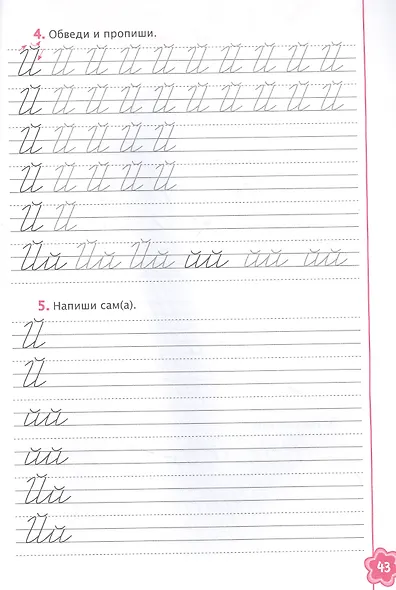 4. Обведи и пропиши.
Й Й Й Й Й Й Й Й Й Й
Й Й Й Й Й Й Й Й Й Й
Й Й Й Й Й
Й Й Й Й Й
Й Й
Йй Йй Йй йй йй йй
5. Напиши сам(а).
Й
Й
йй
йй
Йй
Йй
43